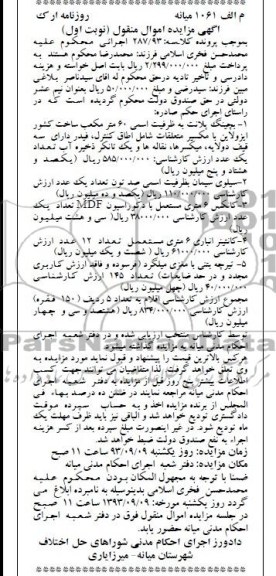 م الف ۱۰۶۱ میانه روزنامه ارک
آگهی مزایده اموال منقول (نوبت اول)
بموجب پرونده کلاسه: ۲۸۷/۹۳ اجرائی محکوم علیه
محمدحسن فخری اسلامی فرزند: محمدرضا محکوم هستند به
پرداخت مبلغ ۲/۲۹۹/۰۰۰/۰۰۰ ریال بابت اصل خواسته و هزینه
دادرسی و تاخیر تادیه درحق محکوم له آقای سیدناصر بلاغی
مبین فرزند: سیدرضی و مبلغ ۵۰/۰۰۰/۰۰۰ ریال بعنوان نیم عشر
دولتی در حق صندوق دولت محکوم گردیده است که در
راستای اجرای حکم صادره:
۱-بچینگ پلانت به ظرفیت اسمی ۶۰ متر مکعب ساخت کشور
ایزولاین با مکسیر متعلقات شامل اطاق کنترل، فیدر دارای سه
قیف دولایه، میکسرها، نقاله ها و یک تانکر ذخیره آب تعداد
یک عدد ارزش کارشناسی: ۵۸۵/۰۰۰/۰۰۰ ریال (پانصد و
هشتاد و پنج میلیون ریال)
۲-سیلوی سیمان بظرفیت اسمی صد تون تعداد یک عدد ارزش
کارشناسی ۱۱۰/۰۰۰/۰۰۰ ریال (یکصد و ده میلیون ریال)
۳-کانکس ۶ متری مستعمل با دکوراسیون MDF تعداد یک
عدد ارزش کارشناسی ۳۸۰۰۰/۰۰۰ ریال( سی و هشت میلیون
ریال)
۴-کانتینر انباری ۶ متری مستعمل تعداد ۱۲ عدد ارزش
کارشناسی ۶۱/۰۰۰/۰۰۰ ریال ( شصت و یک میلیون ریال)
۵- تیرچه بتنی با متری میلگرد فرسوده و فاقد ارزش کاربری
مجدد و در حد ضایعات تعداد ۱۴۵ ارزش کارشناسی
۴۰/۰۰۰/۰۰۰ ریال (چهل میلیون ریال)
مجموع ارزش کارشناسی اقلام به تعداد ۵ ردیف (۱۵۰ فقره)
ارزش کارشناسی ۸۳۴/۰۰۰/۰۰۰ ریال (هشتصد و سی و چهار
میلیون ریال)
توسط کارشناس منتخب ارزیابی شده و در دفتر شعبه اجرای
احکام مدنی میانه به مزایده گذاشته میشود
هرکس بالاترین قیمت را پیشنهاد و قبول نماید مورد مزایده به
وی تعلق خواهد گرفت، لذا متقاضیان می توانند جهت کسب
اطلاعات بیشتر پنج روز قبل از مزایده به دفتر شعبه اجرای
احکام مدنی میانه مراجعه نمایند در ضمن ده درصد بهاء فی
المجلس از برنده مزایده اخذ و به حساب سپرده موقت
دادگستری تودیع خواهد شد و الباقی نیز باید ظرف مهلت یک
ماه تودیع شود. در غیر اینصورت مبلغ سپرده بعد از کسر هزینه
اجراء به نفع صندوق دولت ضبط خواهد شد.
زمان مزایده: روز یکشنبه ۹۳/۰۹/۰۹ ساعت ۱۱ صبح
مکان مزایده: دفتر شعبه اجرای احکام مدنی میانه
ضمنا با توجه به مجهول المکان بودن محکوم علیه
محمدحسن فخری اسلامی بدینوسیله به نامبرده ابلاغ می
گردد روز یکشنبه مورخه: ۱۳۹۳/۰۹/۰۹ ساعت ۱۱ صبح
در جلسه مزایده اموال منقول فوق در دفتر شعبه اجرای
احکام مدنی میانه حضور یابد.
دادورز اجرای احکام مدنی شوراهای حل اختلاف
شهرستان میانه- میرزایاری